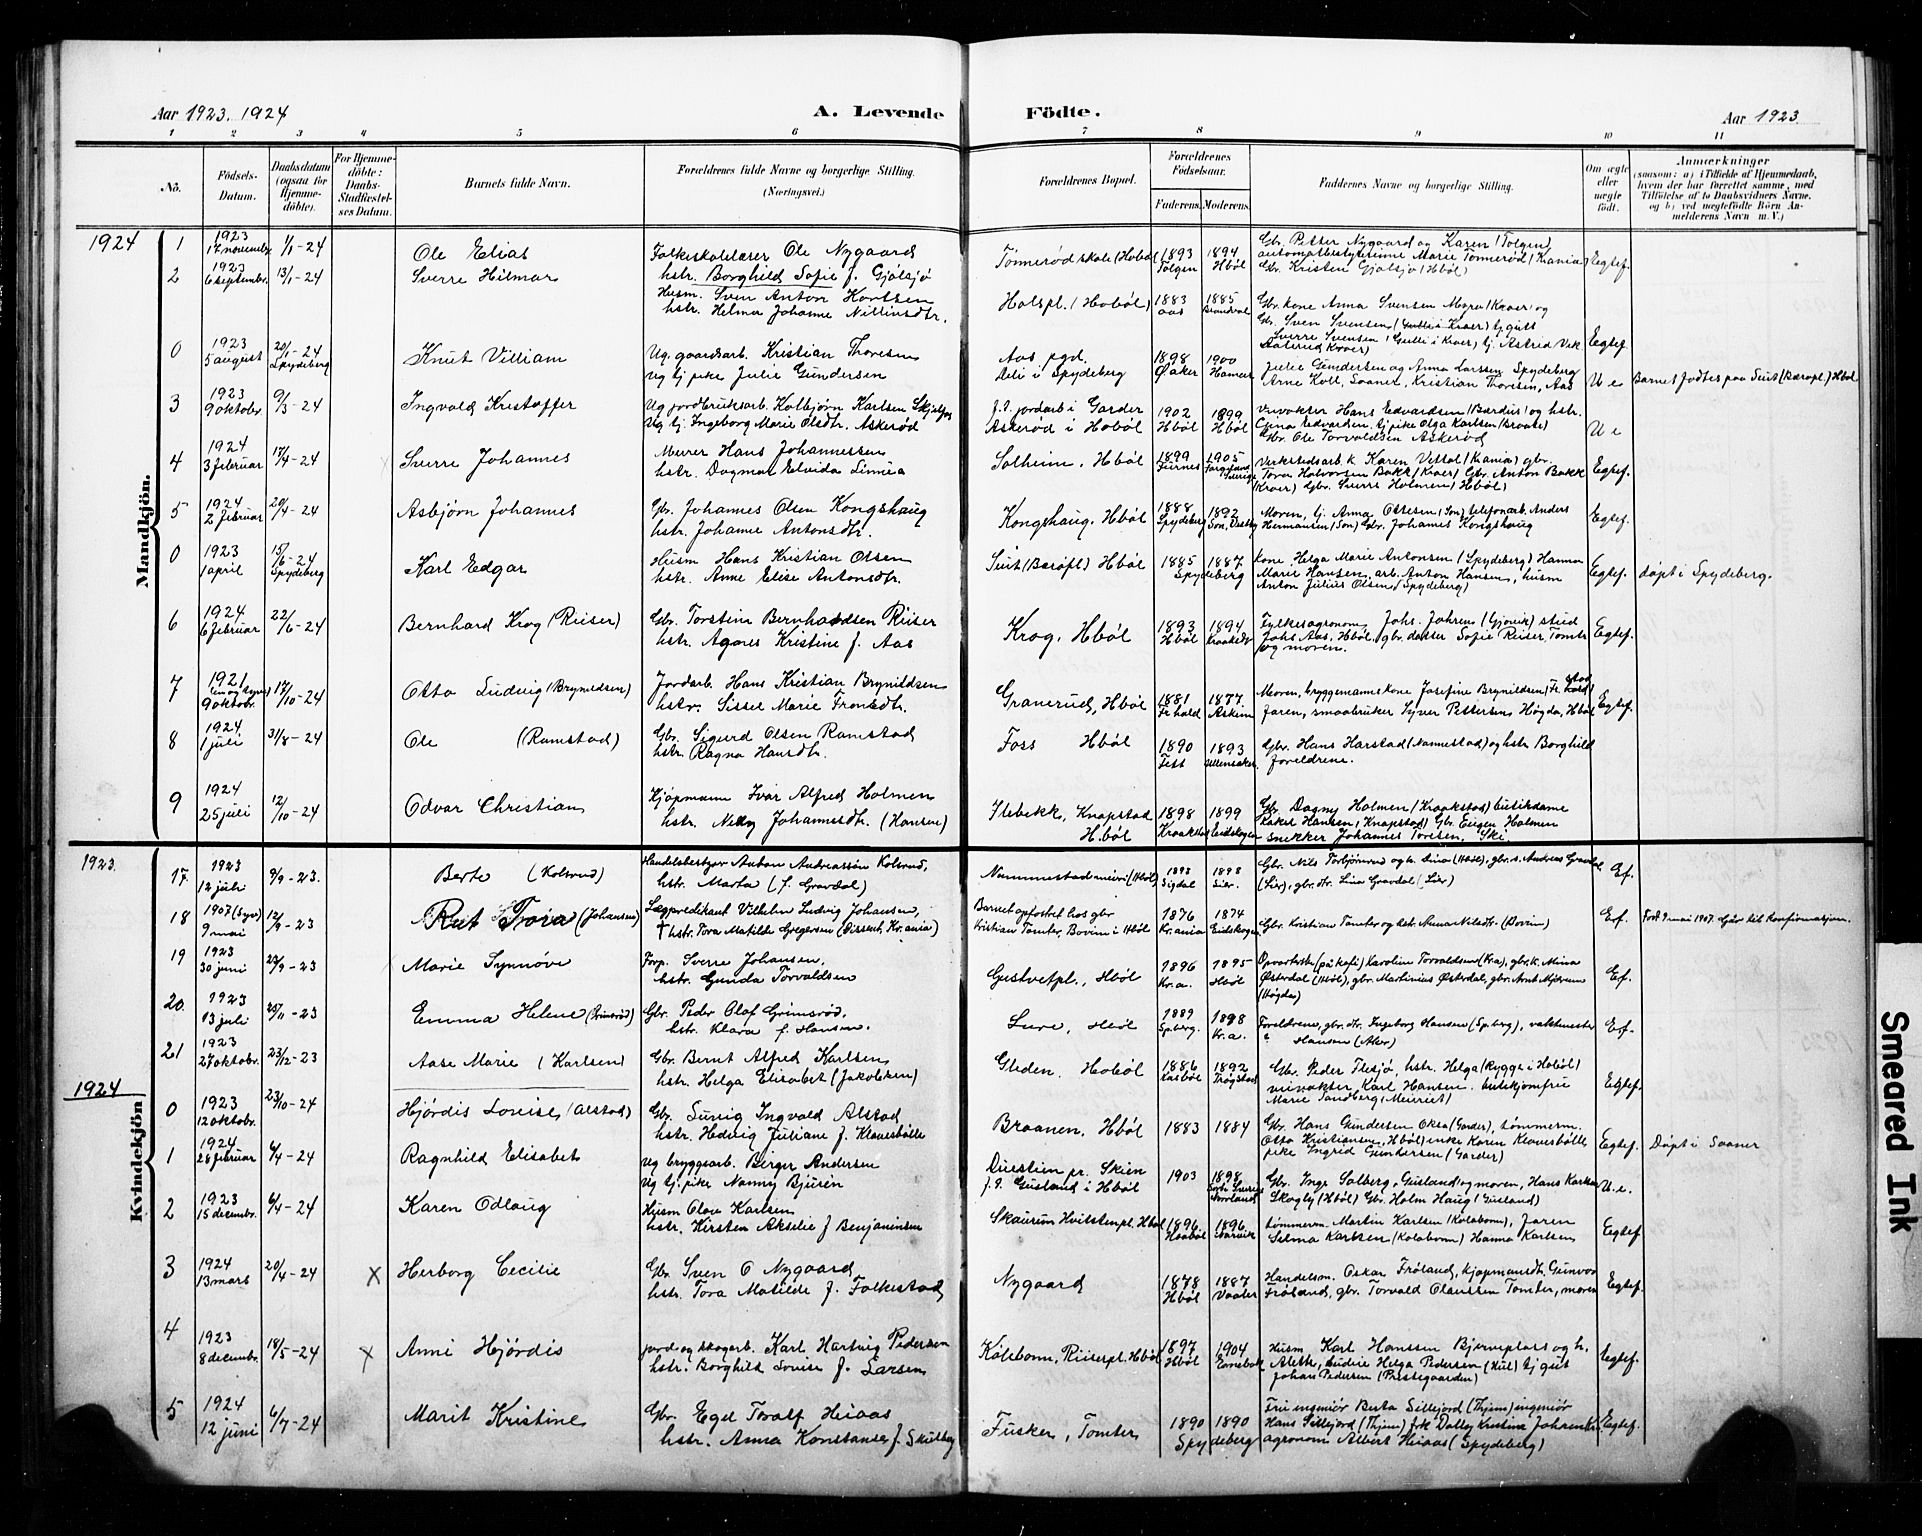 Aar 1923. 1924
A. Levende Födte.
Aar 1923.
1 2 3 4 5 6 7 8 9 10 11
No.
Födsels-Datum.
Daabsdatum (ogsaa for Hjemmedöbte).
For Hjemmedöbte: Daabs-Stadfæstelses Datum.
Barnets fulde Navn.
Forældrenes fulde Navne og borgerlige Stilling. (Næringsvei.)
Forældrenes Bopæl.
Forældrenes Födselsaar.
Faderens. Moderens.
Faddernes Navne og borgerlige Stilling.
Om ægte eller uægte födt.
Anmærkninger
(saasom: a) i Tilfælde af Hjemmedaab, hvem der har forrettet samme, med Tilföielse af to Daabsvidners Navne, og b) ved uægtefödte Börn Anmelderens Navn m. V.)
1924
Mandkjön.
1 1923 17 novembr. 1/1-24 Ole Elias
Folkeskolelærer Ole Nygaard
hstr. Borghild Sofie f. Gjølsjø
Tønnerød skole (Hobøl) 1893 Tolgen 1894 Hbøl
Gbr. Petter Nygaard og Karen (Tolgen)
automatbestyrerinne Marie Tønnerød (Krania)
Gbr. Kristen Gjølsjø (Hbøl)
Egtef.
2 1923 6 septembr. 13/1-24 Sverre Hilmar
Husm. Sven Anton Karlsen
hstr. Helma Johanne
Holspl. (Hobøl) 1883 Aas 1885
Gbr. kone Anna Svensen (Kraer) og
Gbr. Sven Svensen
Egtef.
0 1923 5 august 20/1-24 Spydeberg Knut Villiam
Ug. gaardsarb. Kristian Thoresen
Ug tj. pike Julie Gundersen
Aas pgd.
i Spydeberg 1898 1900 Hamar
Julie Gundersen og Anna Larssen Spydeberg
Arne Koll, Saaner, Kristian Thoresen, Aas
U e
Barnet fødtes paa Suit (Barøpl.) Hbøl
3 1923 9 oktobr. 9/3-24 Ingvald Kristoffer
Ug jordbruksarb. Kolbjørn Karlsen
Ug tj. Ingeborg Marie Olsdtr. Askerød
f. t. jordarb i Garder
Askerød i Hobøl 1902 Hbøl 1899 Hbøl
Hans Edvardsen og hstr.
tj. pike Olga Karlsen
Gbr. Ole Torvaldsen Askerød
U e
4 1924 3 februar 17/4-24 Sverre Johannes
Murer Hans Johannessen
hstr. Dagmar Elvida Linnea
Solheim, Hbøl 1899 1905 Sverige
Verkstedsarb. k. Karen Vettal (Krania) gbr.
Tora Halvorsen Bakk (Kraer) Gbr. Anton Bakk
(Kraer) Gbr. Sverre Holmen (Hbøl)
Egtef.
5 1924 2 februar 20/4-24 Asbjørn Johannes
Gbr. Johannes Olsen Kongshaug
hstr. Johanne Antonsdtr.
Kongshaug, Hbøl 1888 Spydeberg 1892 Son, Vestby
Moren, tj. Anna Ottesen (Son) telefonarb. Anders
Hermansen (Son) Gbr. Johannes Kongshaug
Egtef.
0 1923 1 april 15/6-24 Spydeberg Karl Edgar
Husm Hans Kristian Olsen
hstr. Anne Elise Antonsdtr.
Suit (Barøpl.) Hbøl 1885 1887 Spydeberg
Kone Helga Marie Antonsen (Spydeberg) Hanna
Marie Hansen, arb. Anton Hansen, husm
Anton Julius Olsen (Spydeberg)
Egtef.
Døpt i Spydeberg.
6 1924 6 februar 22/6-24 Bernhard Krog (Riiser)
Gbr. Torstein Bernhardsen Riiser
hstr. Agnes Kristine f. Aas
Krog, Hbøl 1893 Hbøl 1894 Kraakstd
Fylkesagronom Johs. Johren (Gjøvik) stud
Johs Aas, Hbøl, gbr. datter Sofie Riiser, Tomter
og moren.
Egtef.
7 1921 9 oktobr. 17/10-24 Otto Ludvig (Brynildsen)
Jordarb. Hans Kristian Brynildsen
hstr. Sissel Marie
Granerud, Hbøl 1881 Fr.hald 1877 Askim
Moren, bryggemannskone Josefine Brynildsen
Faren, smaabruker Syver Pettersen Høgda, Hbøl
Egtef.
8 1924 1 juli 31/8-24 Ole (Ramstad)
Gbr. Sigurd Olsen Ramstad
hstr. Ragna Hansdtr.
Foss Hbøl 1890 1893 Ullensaker
Gbr. Hans Harstad (Nannestad) og hstr Borghild
foreldrene.
9 1924 25 juli 12/10-24 Odvar Christian
Kjøpmann Ivar Alfred Holmen
hstr. Nelly Johannesdtr. (Hansen)
Ilebekk, Knapstad
Hbøl 1898 Kraakstad 1899 Eidskogen
Gbr. Dagny Holmen (Kraakstad) butikdame
Rakel Hansen, Knapstad) Gbr. Eugen Holmen
snekker Johannes Toresen, Ski
1923.
Kvindekjön
17. 1923 12 juli 9/9-23. Berte (Kolsrud)
Handelsbestyr Anton Andreassøn Kolsrud,
hstr. Marta (f. Gravdal)
Nummestad meieri (Hbøl) 1893 Sigdal 1898 Lier.
Gbr. Nils Torbjørnrud og h. Lina (Hbøl), gbr. s. Andreas Gravdal
(Lier), gbr. dtr. Lina Gravdal (Lier)
Ef.
18 1907 (syv) 9 mai 12/9-23 Rut Tora (Johansen)
Lægpredikant Vilhelm Ludvig Johansen,
hstr. Tora Matilde Gregersen (Dissent, Kr.ania)
Barnet opfostret hos gbr
Kristian Tomter, Bovim i Hbøl 1876 Kr.ania 1874 Eidskogen
Gbr. Kristian Tomter og hstr. Anna Nilsdtr. (Bovim)
Ef.
Født 9 mai 1907. Går til konfirmasjon.
19 1923 30 juni 23/9-23 Marie Synnøve
Forp. Sverre Johansen,
hstr. Gunda Torvaldsen
Gustvetpl., Hbøl 1896 Kr.a. 1895 Hbøl
Opvartske (på kafé) Karoline Torvaldsen (Kra), gbr. k. Mina
Østerdal (Hbøl), gbr. Martinius Østerdal, gbr. Arnt
(Høgda)
Ef.
20. 1923 13 juli 25/11-23 Emma Helene (Grimsrød)
Gbr. Peder Olaf Grimsrød,
hstr. Klara f. Hansen.
Lure, Hbøl 1889 Sp.berg. 1898 Kr.a.
Foreldrene, gbr. dtr. Ingeborg Hansen (Sp.berg), vaktmester
Hansen (Aker)
Ef.
21 1923 27 oktobr. 23/12-23 Aase Marie (Karlsen)
Gbr. Bernt Alfred Karlsen
hstr. Helga Elisabet (Jakobsen)
Gleden, Hobøl 1886 1892 Trøgstad
Gbr. Peder Flesjø, hstr. Helga (Rygge i Hobøl)
Karl Hansen, butikjomfru
Marie Sandberg, (Meieriet)
Egtef.
1924
0 1923 12 oktobr. 23/10-24 Hjørdis Louise (Alstad)
Gbr. Ingvald Alstad
hstr. Hedvig Juliane f. Klaverbølle
Braanen, Hbøl 1883 1884
Gbr. Hans Gundersen (Garder), tømmerm.
Otto Kristiansen, Hbøl) enke Karen Klaverbølle
pike Ingrid Gundersen (Garder)
Egtef.
Døpt i Saaner
1 1924 28 februar 6/4-24 Ragnhild Elisabet
Ug bryggearb. Birger Andersen
Ug tj. pike Nanny Bjurøn
pr. Skien
f. t. Gusland i Hbøl 1903 1898
Gbr. Inge Solberg, Gusland og moren, Hans Karlsen
Skogly (Hbøl) Gbr. Holm Haug (Gusland)
U. e.
2 1923 15 decembr. 6/4-24 Karen Odlaug
Husm Olav Karlsen
hstr. Kirsten Akselie f Benjaminsen
Skaurum Hvitstenpl. Hbøl 1896 1896 Narvik
tømmerm. Martin Karlsen (Kolabonn), Faren
Selma Karlsen (Kolabonn) Hanna Karlsen
Egtef
3 1924 13 mars 20/4-24 X Herborg Cecilie
Gbr. Sven O Nygaard
hstr. Tora Matilde f. Falkestad
Nygaard 1878 Hbøl 1887 Vaaler
Handelsm. Oskar Frøland, kjøpmandtr. Gunvor
Frøland, gbr. Torvald Olaussen Tomter, moren
Egtef.
4 1923 8 decembr. 18/5-24 X Anni Hjørdis
jord og skogarb. Karl Hartvig Pedersen
hstr. Borghild Louise f. Larsen
Kølabonn, Riiserpl. Hbøl 1897 Hbøl 1904 Enebak
Husm Karl Hanssen Bjerverplass og h.
Alethe, budeie Helga Pedersen tj gut
Johan Pedersen (Prestegaarden)
Egtef.
5 1924 12 juni 6/7-24 Marit Kristine
Gbr. Egel Toralf Heiaas
hstr. Anna Konstanse f. Skulberg
Fusker, Tomter 1890 1890 Spydeberg
Fru ingeniør Berta Sillejord (Thjem) ingeniør
Hans Sillejord (Thjem) frk Dally Kristine Johansen
agronom Albert Heiaas (Spydeberg)
Egtef.
Smeared Ink